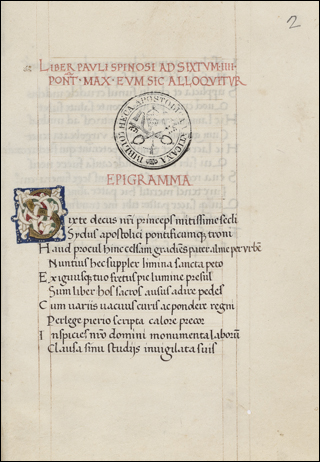 2
LIBER PAULI SPINOSI AD SIXTUM·IIII·
PONT·MAX·EUM SIC ALLOQUITUR
BIBLIOTHECA APOSTOLICA VATICANA
EPIGRAMMA
Sixte decus nri princeps mitissime secli
Sydus apostolici pontificumq; troni
Haud procul hinc celsam gradiens pater alme per urbem
Nuntius hec supplex limina sancta peto
Exiguusq; tuo fretus pie lumine presul
Sum liber hos sacros ausus adire pedes
Cum variis vacuus curis ac pondere regni
Perlege pierio scripta calore precor
Inspicies nro domini monumenta laborum
Clausa sinu studiis invigilata suis